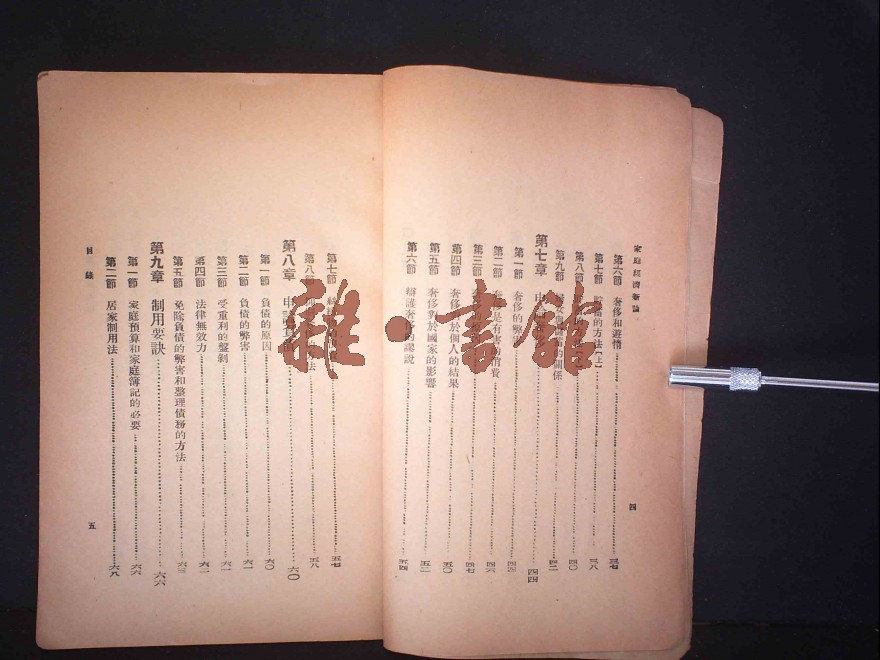 家庭經濟新論
四
第六節 奢侈和遊惰 三七
第七節 的方法【上】 三八
第八節 四〇
第九節 的關係 四二
第七章 四四
第一節 奢侈的弊害 四四
第二節 奢侈是有害的消費 四六
第三節 四七
第四節 奢侈對於個人的結果 五〇
第五節 奢侈對於國家的影響 五二
第六節 辯護奢侈的謬說 五四
第七節 五七
第八節 法 五八
第八章 申論負債 六〇
第一節 負債的原因 六〇
第二節 負債的弊害 六一
第三節 受重利的盤剝 六一
第四節 法律無效力 六二
第五節 免除負債的弊害和整理債務的方法 六三
第九章 制用要訣 六六
第一節 家庭預算和家庭簿記的必要 六六
第二節 居家制用法 六八
目錄
五
雜·書館